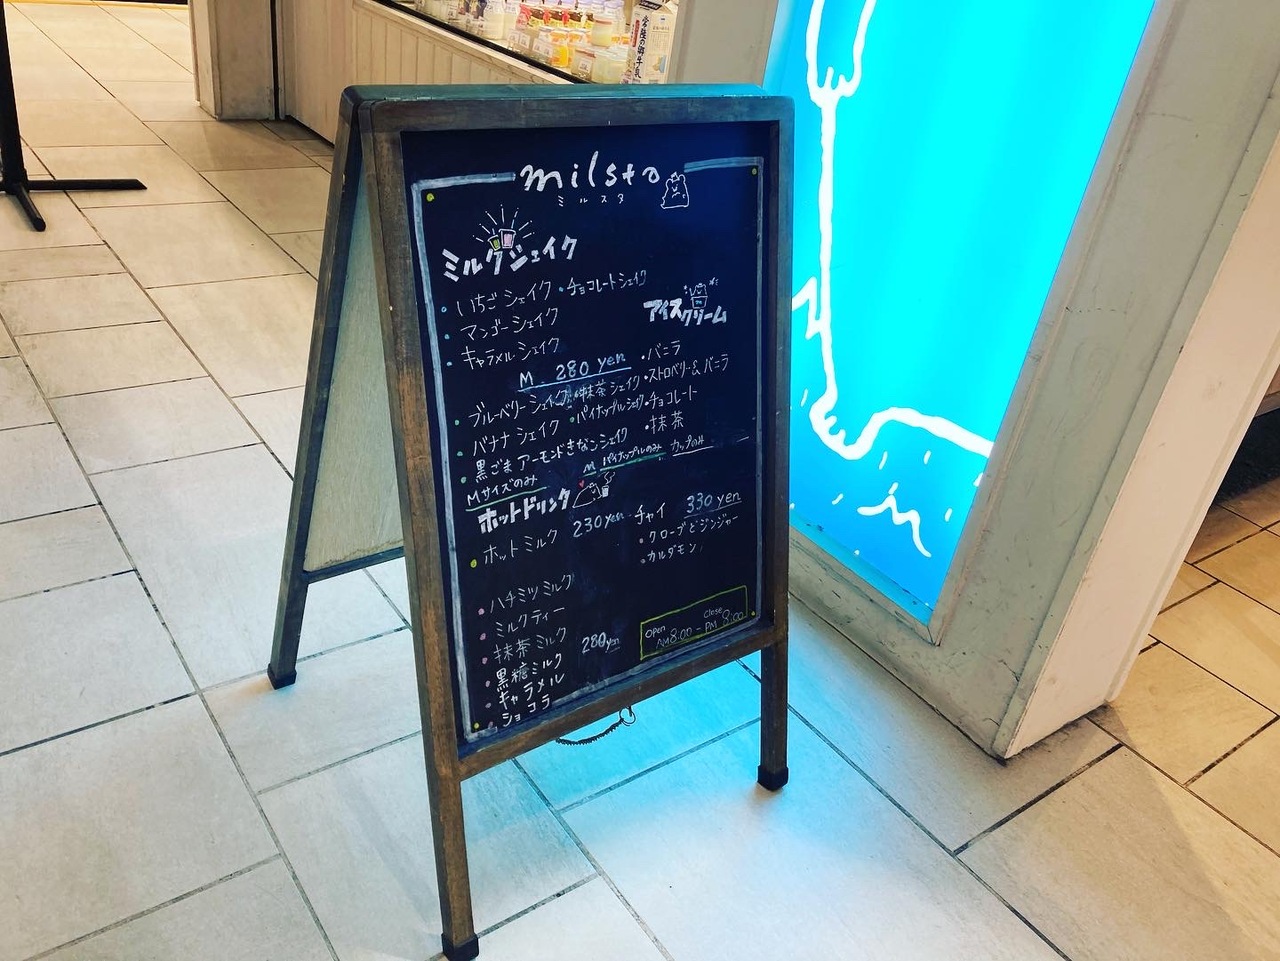 milsto
ミルスタ
ミルクシェイク
・いちごシェイク ・チョコレートシェイク
・マンゴーシェイク
・キャラメルシェイク
M 280 yen
・ブルーベリーシェイク ・抹茶シェイク
・バナナシェイク ・パイナップルシェイク
・黒ごまアーモンドきなこシェイク
Mサイズのみ
M パイナップルのみ
アイスクリーム
・バニラ
・ストロベリー&バニラ
・チョコレート
・抹茶
カップのみ
ホットドリンク
・ホットミルク 230yen
・ハチミツミルク
・ミルクティー
・抹茶ミルク 280yen
・黒糖ミルク
・キャラメル
・ショコラ
・チャイ 330 yen
・クローブとジンジャー
・カルダモン
open Close
AM8:00-PM 8:00